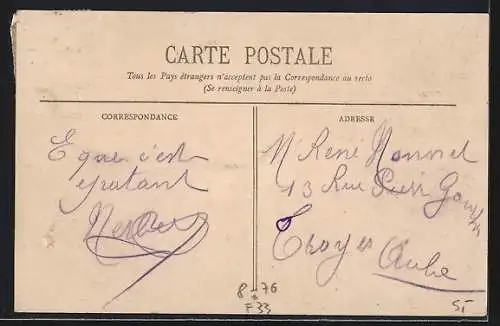 CARTE POSTALE
Tous les Pays étrangers n'acceptent pas la Correspondance au recto
(Se renseigner à la Poste)
CORRESPONDANCE
E que c'est
epatant
ADRESSE
M René
13 Rue
Troyes
Aube
8-76
F33
ST